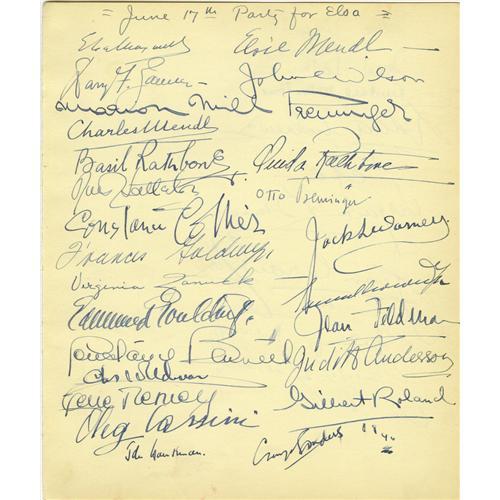 = June 17th Party for Elsa =
Elsa Maxwell Elsie Mendl
John C Wilson
Marion Mill Preminger
Charles Mendl
Basil Rathbone Ouida Rathbone
Otto Preminger
Constance Collier Jack L Warner
Frances Goldwyn
Virginia Zanuck
Edmund Goulding Jean Feldman
Constance Bennett Judith Anderson
Gene Tierney Gilbert Roland
Oleg Cassini
George Sanders